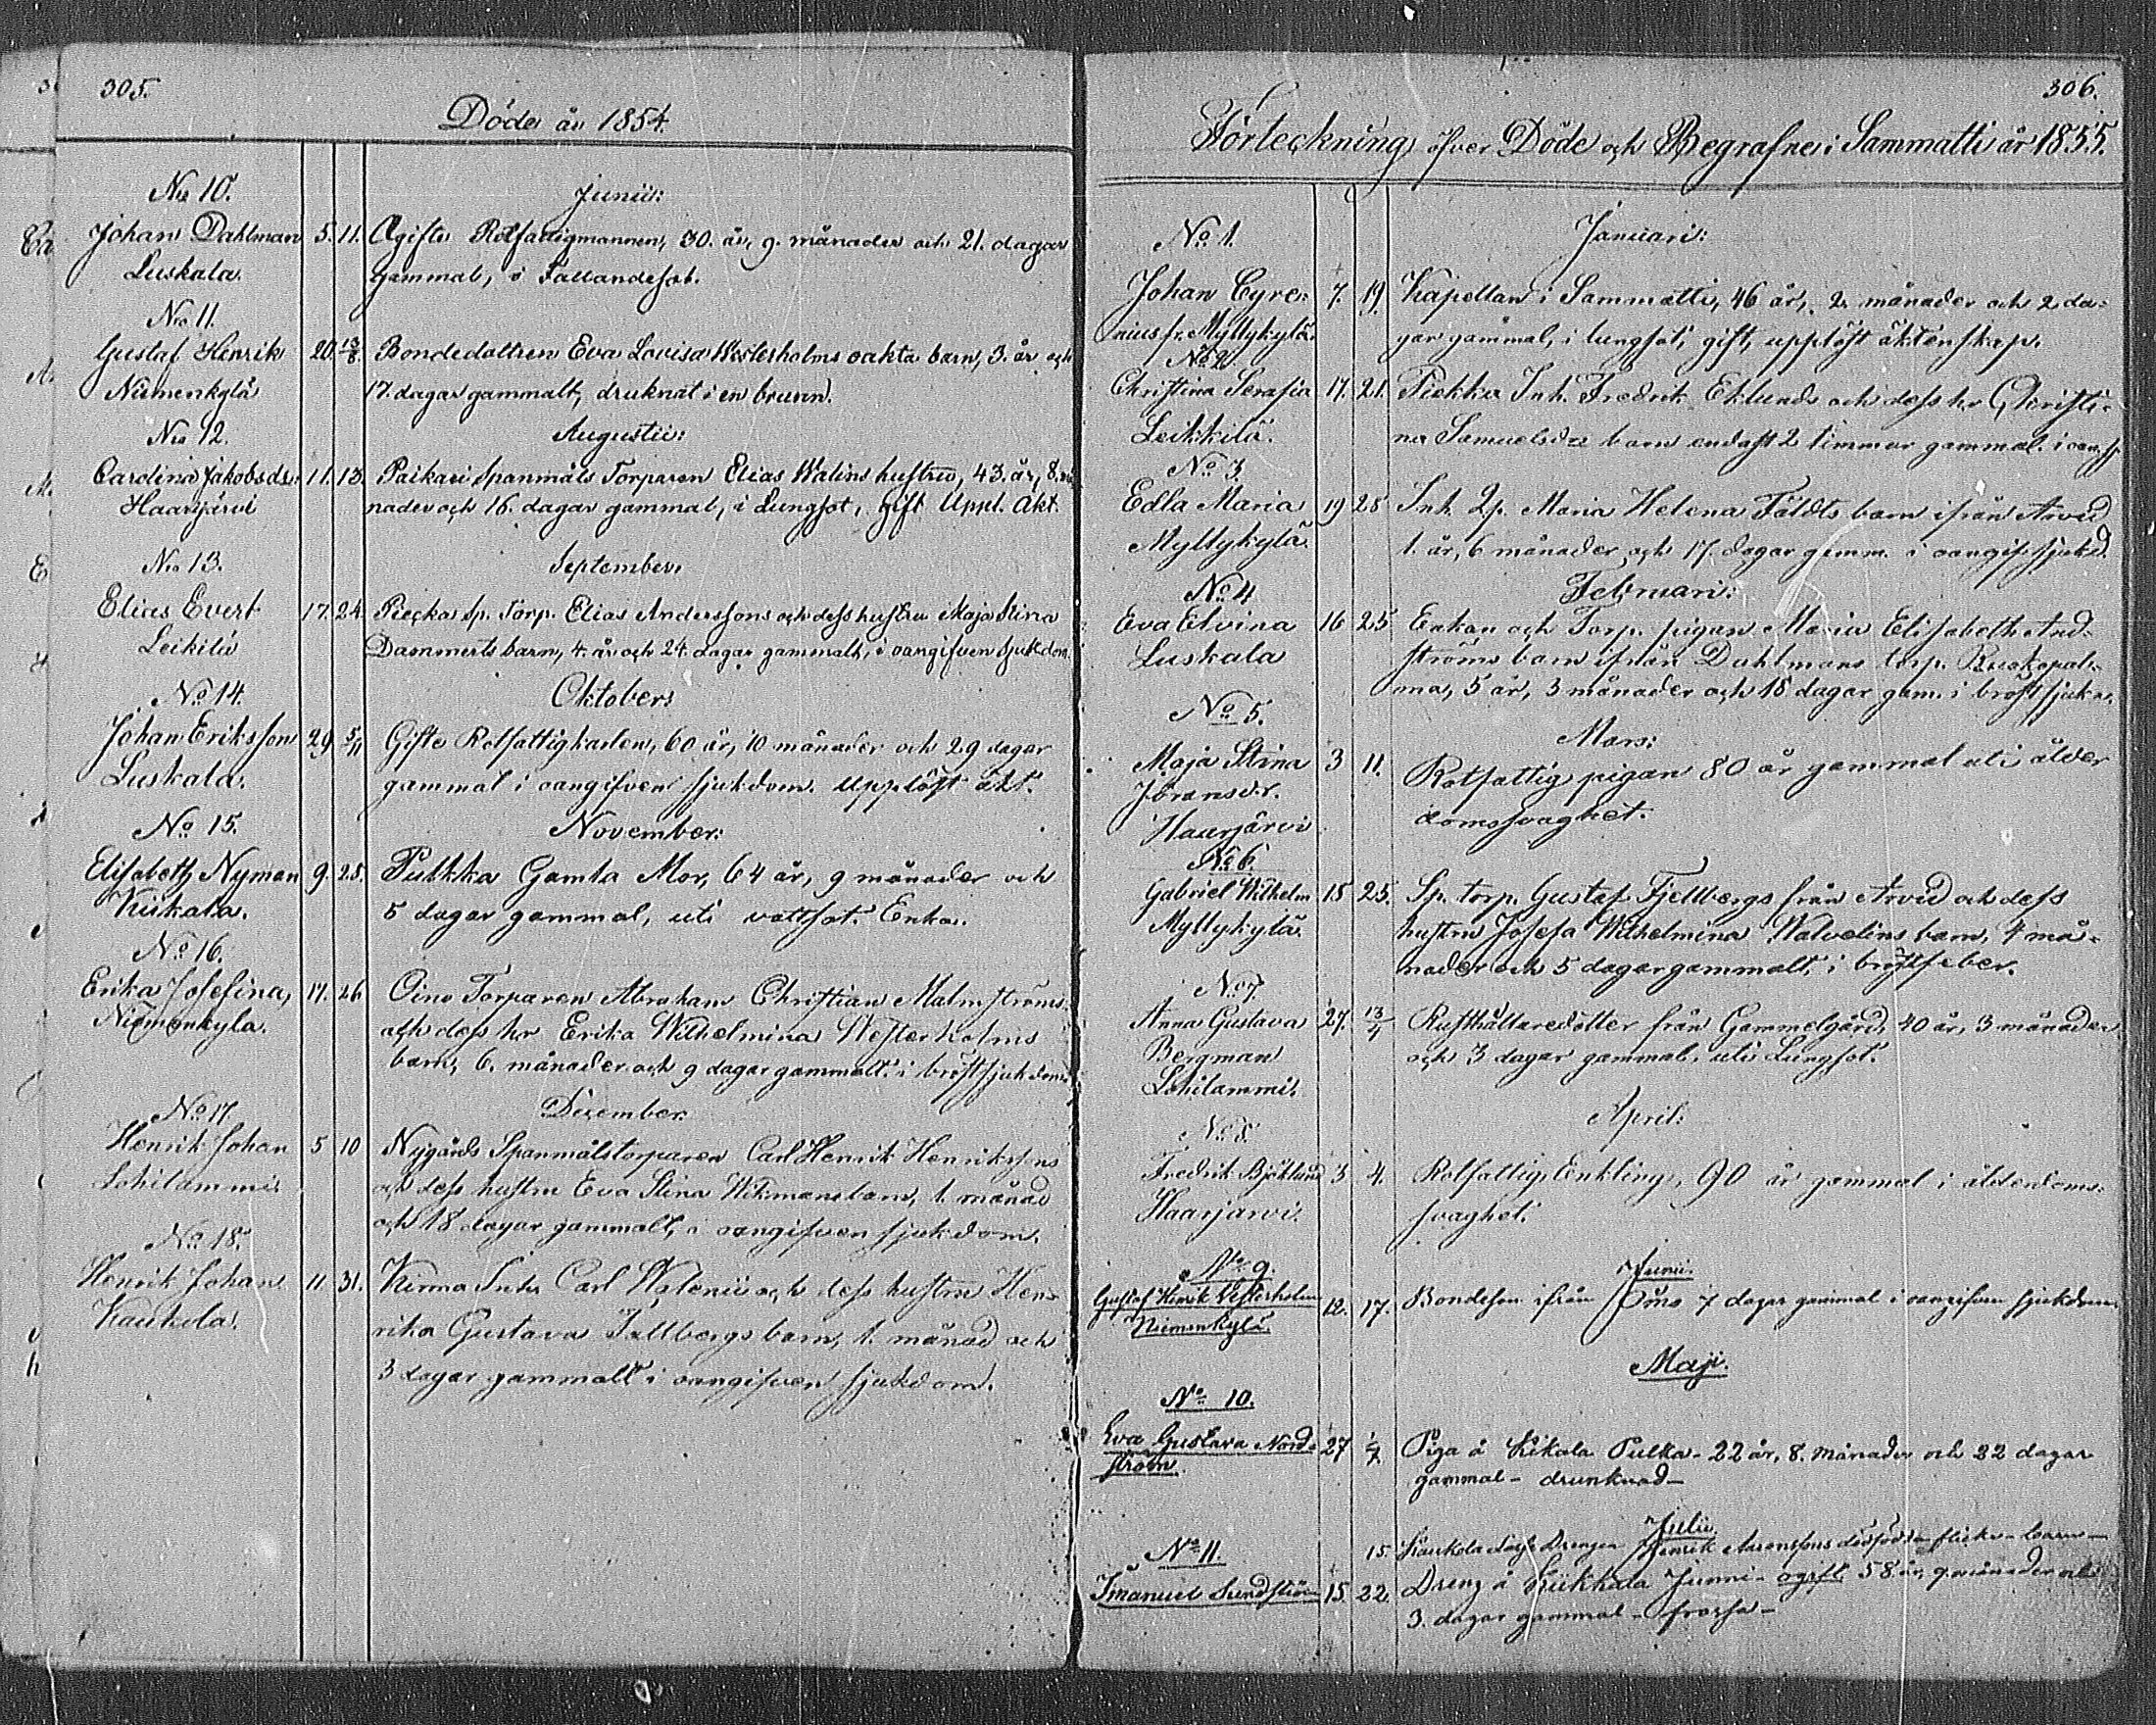 305.
Döde år 1854.
No 10.
Junii:
Johan Dahlman 5. 11. Ogifte Rotfattigmannen, 30. år, 9. månader och 21. dagar
Luskala. gammal, i Fallandesot.
No 11.
Gustaf Henrik 20. 13/8. Bondedottren Eva Lovisa Westerholms oäkta barn, 3. år och
Niemenkylä 17. dagar gammalt, druknat i en brunn.
No 12.
Augustii:
Carolina Jakobsdr. 11. 13. Paikari Spanmåls Torparen Elias Walins hustru, 43. år, 8. må
Haarjärvi nader och 16. dagar gammal, i Lungsot, gift Uppl. Äkt.
No 13.
September.
Elias Evert 17. 24. Piecka Sp. Torp. Elias Anderssons och dess hustru Maja Stina
Leikilä Dammerts barn, 4. år och 24. dagar gammalt, i oangifven sjukdom.
No 14.
Oktober:
Johan Eriksson 29 5/11 Gifte Rotfattigkarlen, 60 år, 10 månader och 29 dagar
Luskala. gammal i oangifven sjukdom. Upplöst äkt.
No 15.
November:
Elisabeth Nyman 9. 28. Pulkka Gamla Mor, 64 år, 9 månader och
Kiikala. 5 dagar gammal, uti vattsot. Enka.
No 16.
Erika Josefina, 17. 26 Oino Torparen Abraham Christian Malmströms
Niemenkyla. och dess hr Erika Wilhelmina Westerholms
barn, 6. månader och 9 dagar gammalt. i bröstsjukdom
No 17
December:
Henrik Johan 5 10 Nygårds Spanmålstorparen Carl Henrik Henrikssons
Lohilammi och dess hustru Eva Stina Wikmans barn, 1. månad
och 18 dagar gammalt, i oangifven sjukdom.
No 18.
Henrik Johan 11. 31. Kirma Inh. Carl Walenii och dess hustru Hen-
Kaukola. rika Gustava Tallbergs barn, 1. månad och
3 dagar gammalt i oangifven sjukdom.
306.
Förteckning öfver Döde och Begrafne i Sammatti år 1855.
No 1.
Januari:
Johan Cyre- 7. 19. Kapellan i Sammatti, 46 år, 2 månader och 2 da-
nius fr. Myllykylä. gar gammal, i lungsot, gift, upplöst äktenskap.
No 2.
Christina Serafia 17. 21. Piekka Inh. Fredrik Eklunds och dess hr Christi-
Leikkilä. na Samuelsdrs barn endast 2 timmar gammal. i
No 3.
Edla Maria 19 28 Inh. Maria Helena Fäldts barn ifrån Arvid
Myllykylä. 1. år, 6 månader och 17. dagar gamm. i oangif. sjukd.
No 4
Februari:
Eva Elvina 16 25 Enkan och Torp. pigan Maria Elisabeth And-
Luskala ströms barn ifrån Dahlmans torp.
ma, 5 år, 3 månader och 18 dagar gam. i bröstsjuka.
No 5.
Mars:
Maja Stina 3 11. Rotfattig pigan 80 år gammal uti ålder
Jöransdr. domssvaghet.
Haarjärvi
No 6.
Gabriel Wilhelm 18 25. Sp. torp. Gustaf Fjellbergs från Arvid och dess
Myllykylä. hustru Josefa Wilhelmina Walvelins barn, 4 må-
nader och 5 dagar gammalt, i bröstfeber.
No 7.
Anna Gustava 27. 13/4 Rusthållaredotter från Gammelgård, 40 år, 3 månader
Bergman och 3 dagar gammal, uti Lungsot.
Lohilammi.
April:
No 8.
Fredrik Björklund 3 4. Rotfattig Enkling, 90 år gammal i ålderdoms-
Haarjärvi. svaghet.
No 9.
Junii.
Gustaf Henrik Westerholm 12. 17. Bondeson ifrån 7 dagar gammal i oangifven sjukdom
Niemenkylä.
Maji.
No 10.
Eva Gustava Nord- 27 Piga å Kikala Pulka - 22 år, 8. månader och 22 dagar
ström. gammal - drunknad -
Julii
15. Kaukola Drengen Henrik Aronssons dödfödda flicke-barn -
No 11.
Imanuel Sundström 15. 22. Dreng å Kiikkala Junni - ogift 58 år, 9 månader och
3. dagar gammal - frossa -